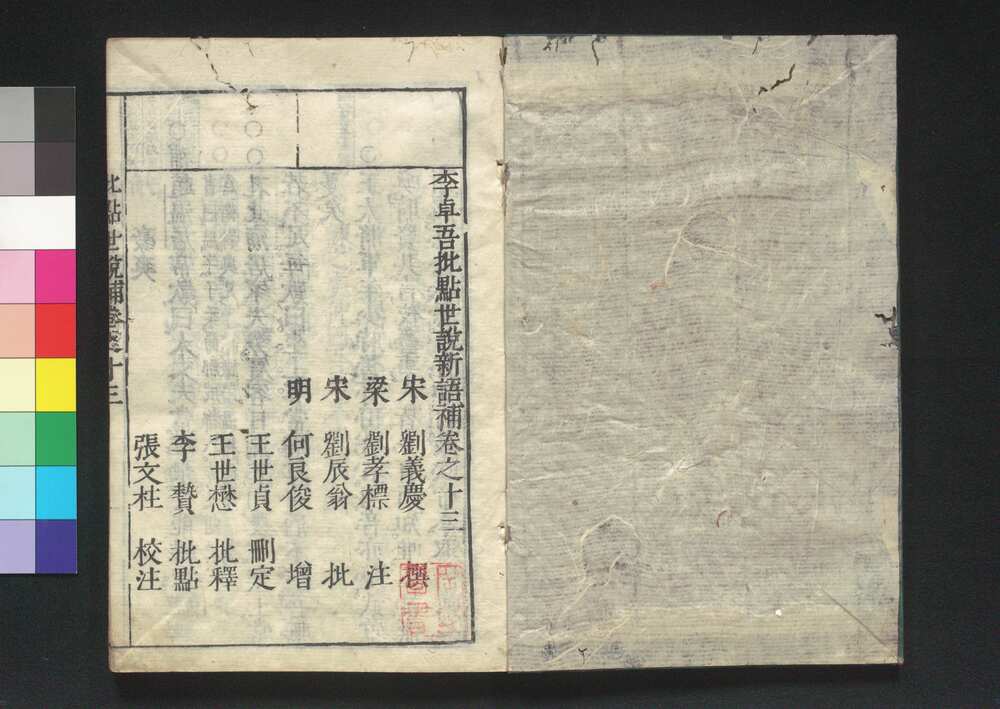 李卓吾批點世說新語補卷之十三
宋 劉義慶 撰
梁 劉孝標 注
宋 劉辰翁 批
明 何良俊 增
王世貞 刪定
王世懋 批釋
李贄 批點
張文柱 校注
批點世說補卷之十三